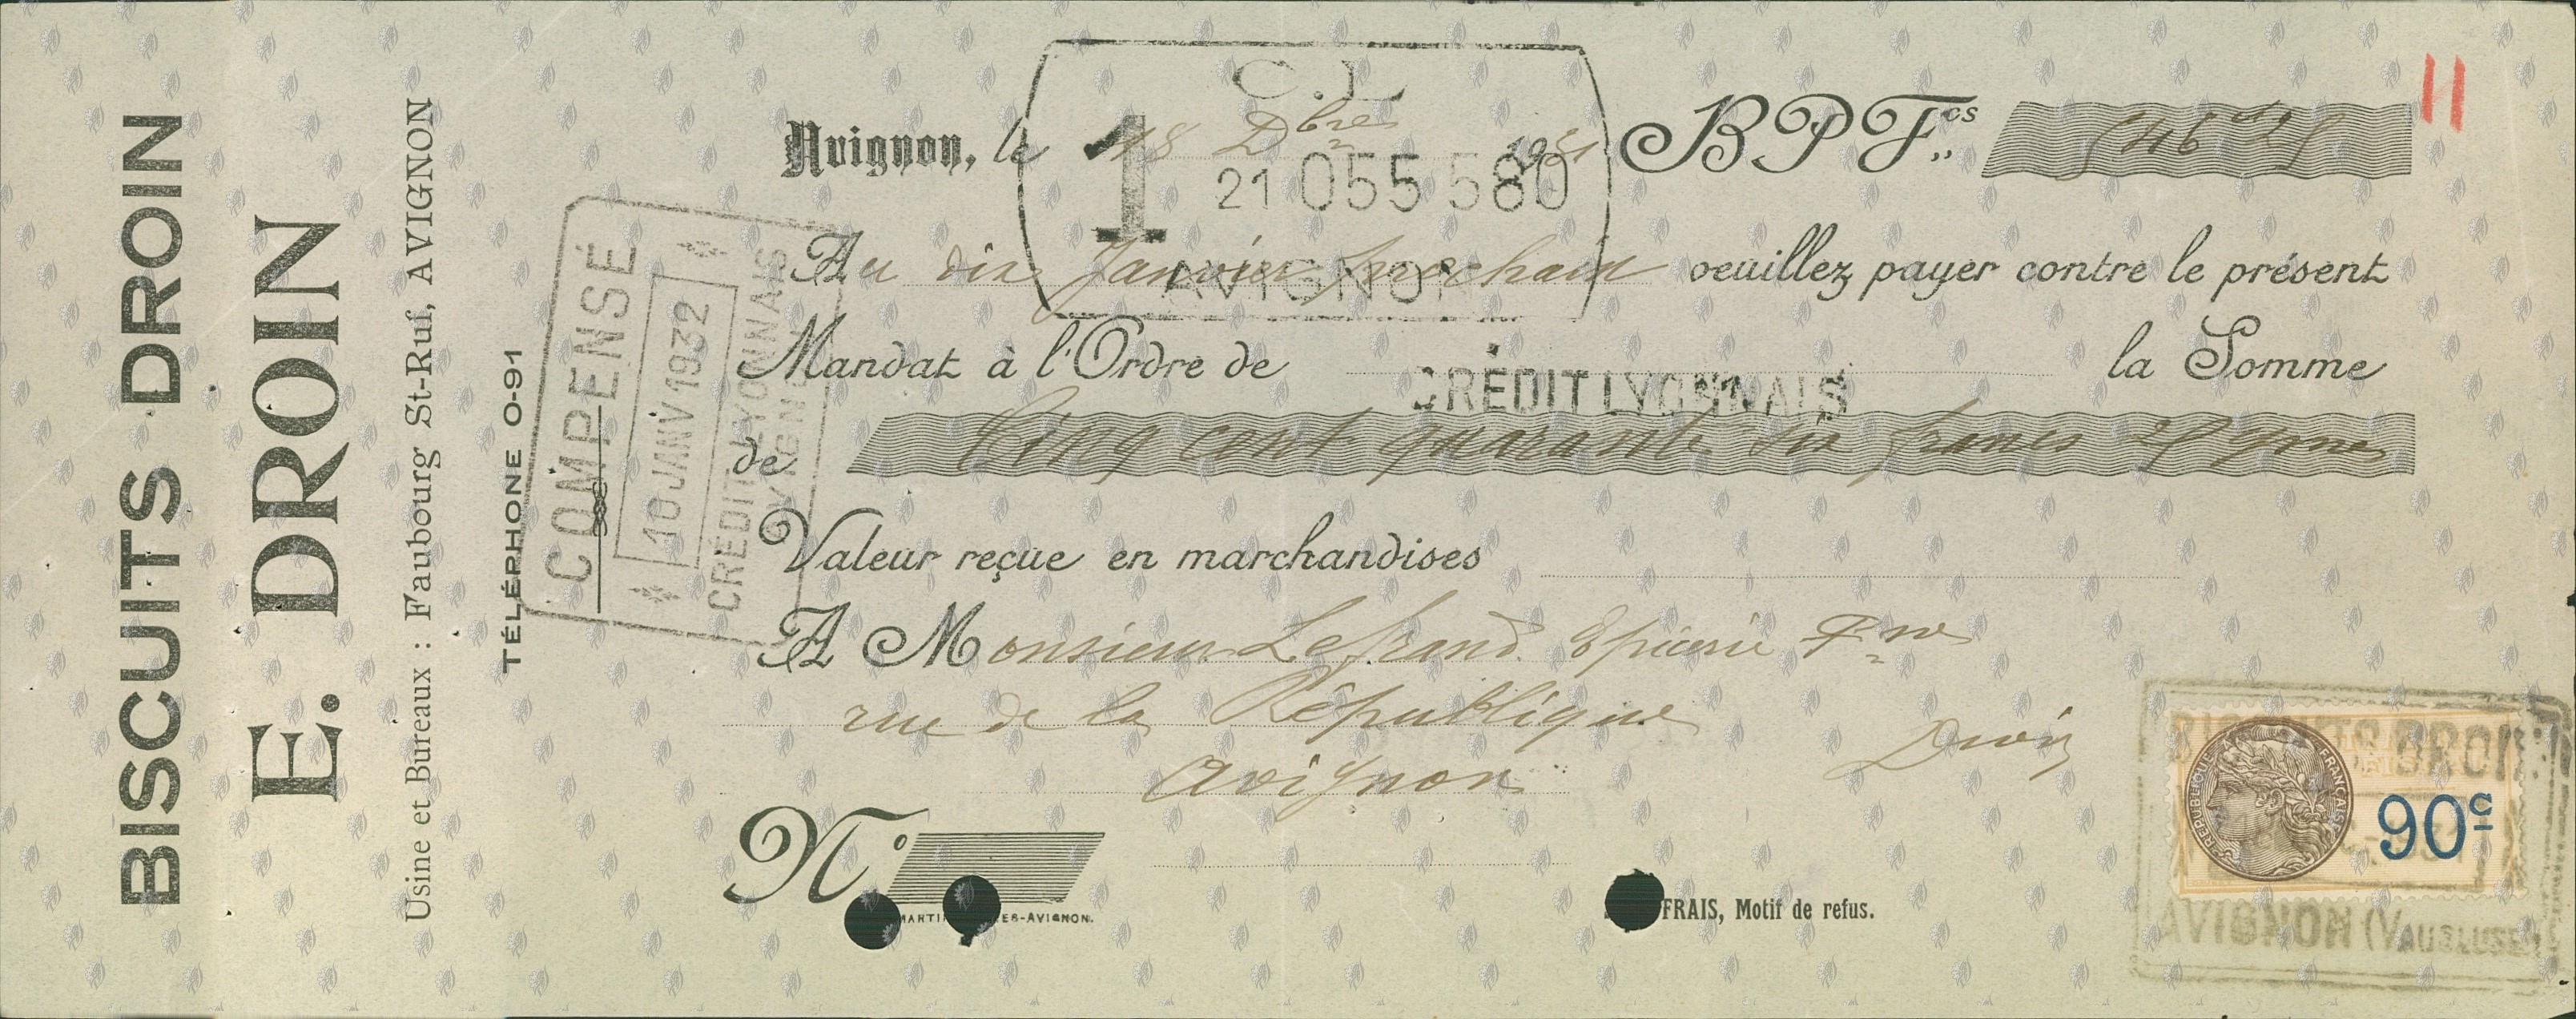 BISCUITS DROIN
E. DROIN
Usine et Bureaux : Faubourg St-Ruf, AVIGNON
TÉLÉPHONE 0-91
COMPENSÉ
10 JANV 1932
CREDIT LYONNAIS
AVIGNON
C. L.
1
21 055 580
AVIGNON
Avignon, le 18 Dbre 1931 BPFcs 546 25
11
Au dix Janvier prochain veuillez payer contre le présent
Mandat à l'Ordre de CRÉDIT LYONNAIS la Somme
de Cinq cent quarante six francs 25
Valeur reçue en marchandises
A Monsieur Lefrand Epicerie
rue de la République
Avignon
Droin
N°
FRAIS, Motif de refus.
BISCUITS DROIN
REPUBLIQUE FRANÇAISE
90c
AVIGNON (VAUCLUSE)